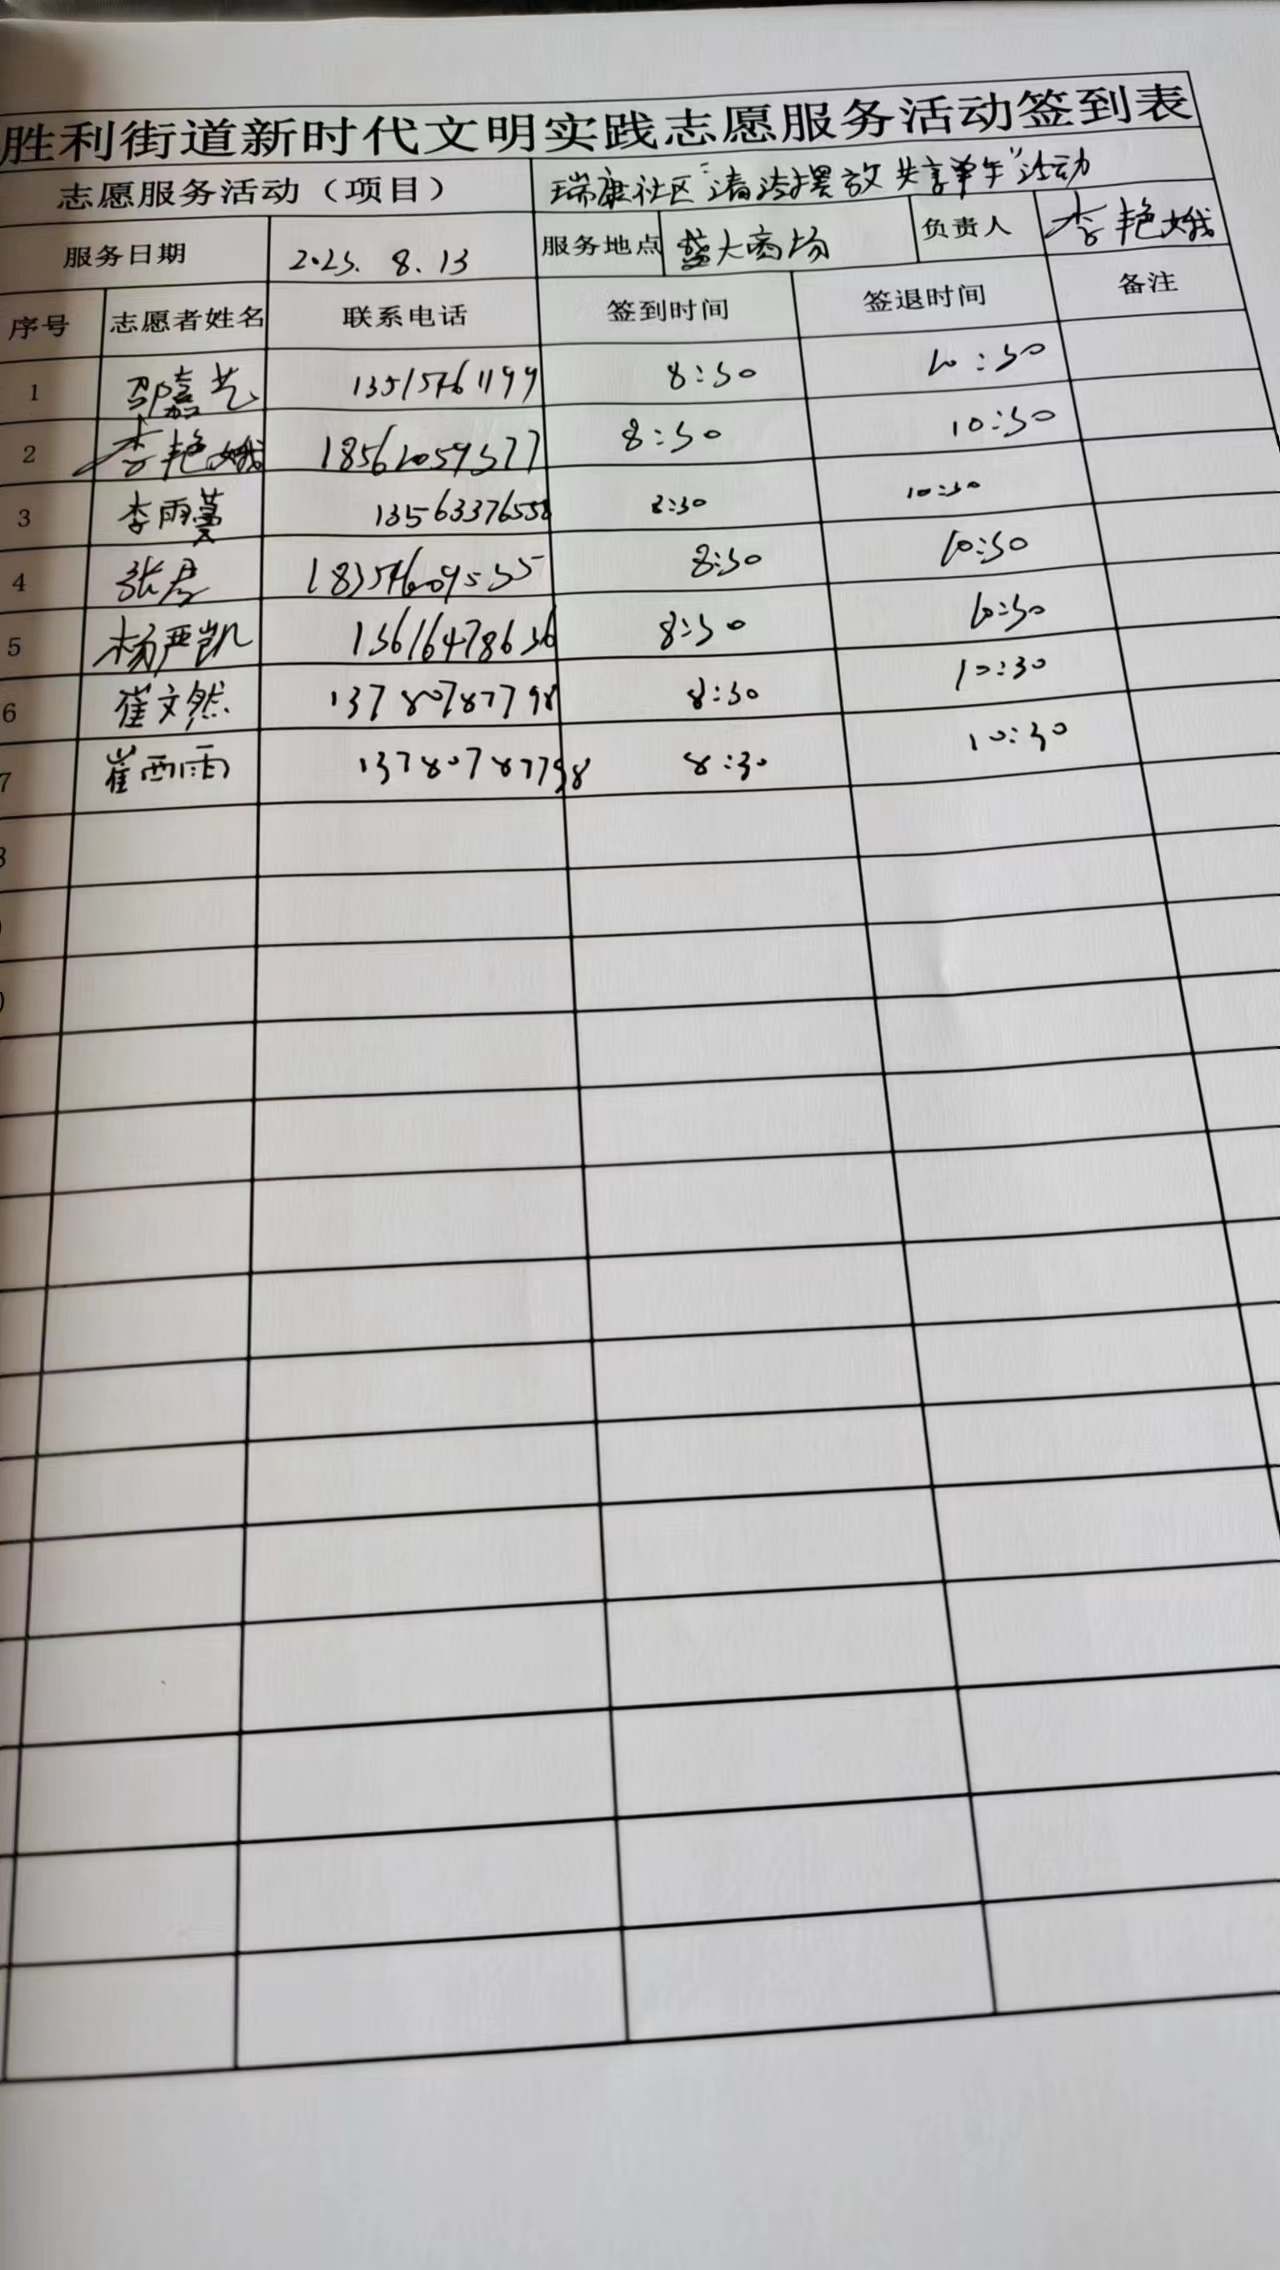 胜利街道新时代文明实践志愿服务活动签到表
志愿服务活动（项目） 瑞康社区"清洁摆放共享单车"活动
服务日期 2025.8.13 服务地点 盛大商场 负责人 李艳娥
序号 志愿者姓名 联系电话 签到时间 签退时间 备注
1 邵嘉艺 13515461199 8:30 10:30
2 李艳娥 18562059577 8:30 10:30
3 李雨蔓 8:30 10:30
4 张彦 8:30 10:30
5 杨严凯 8:30 10:30
6 崔文然 13780787798 8:30 10:30
7 崔西雨 13780787798 8:30 10:30